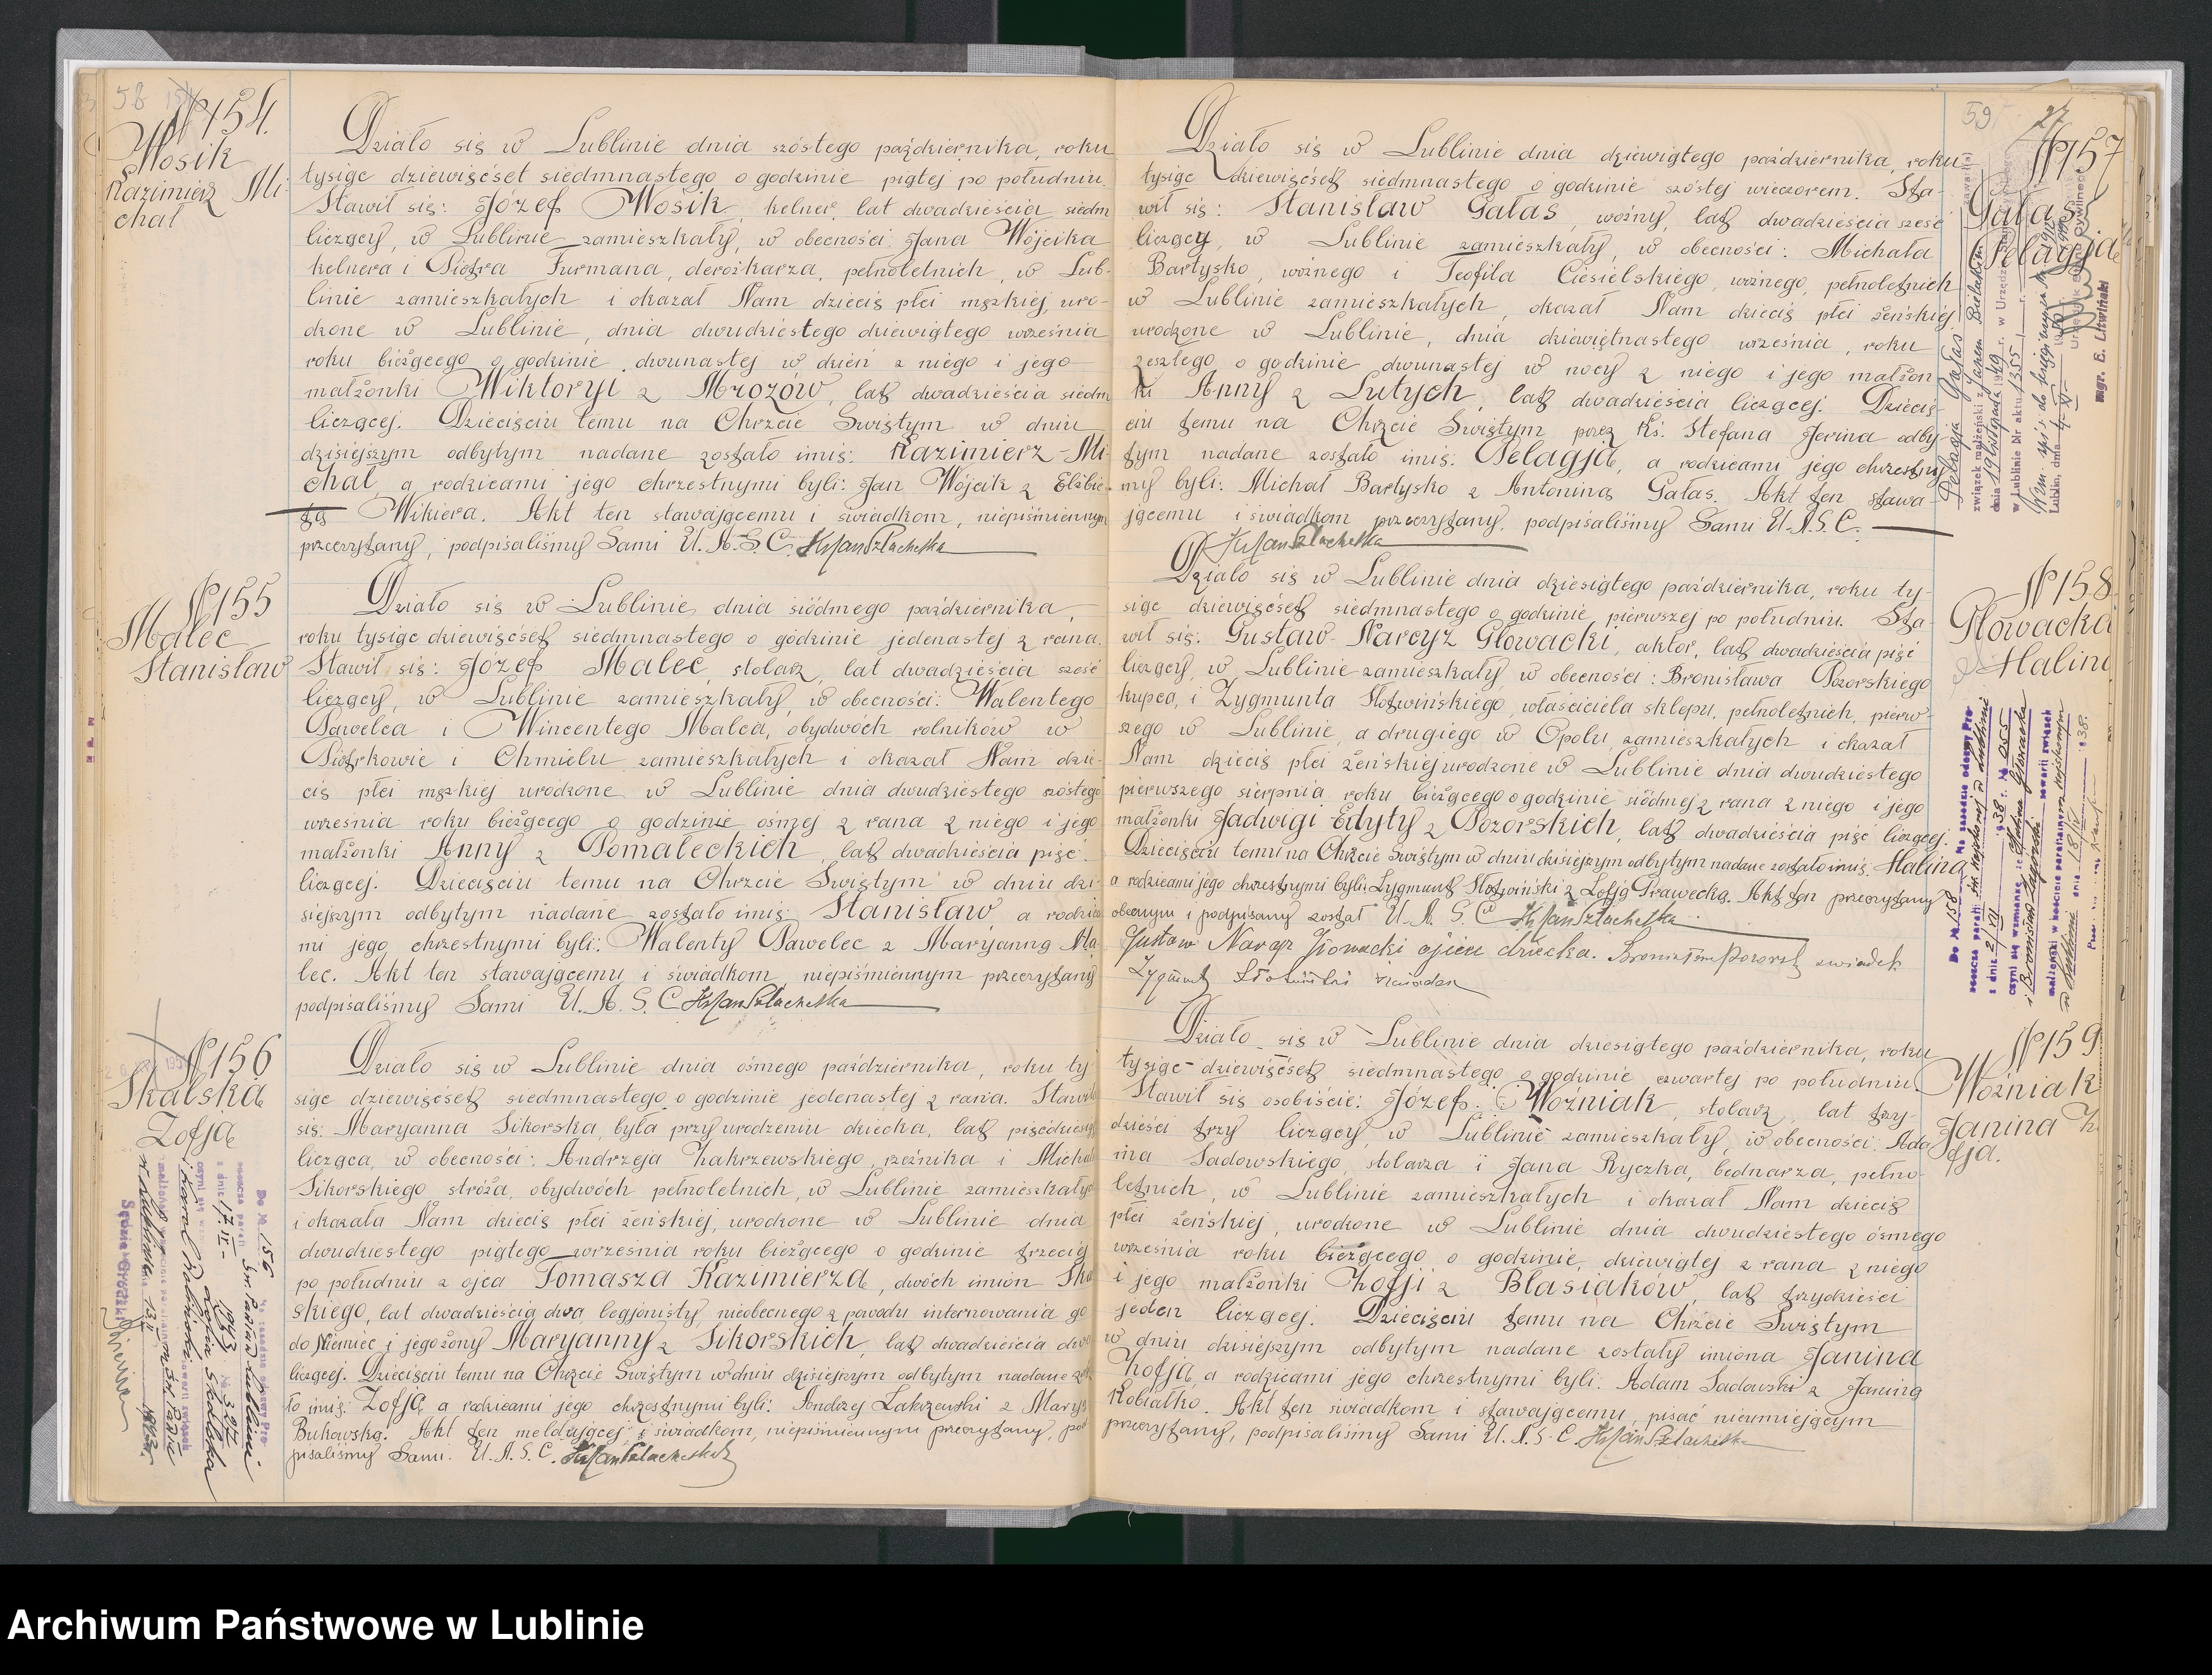 58
№ 154.
Wosik
Kazimierz Mi-
chał
Działo się w Lublinie dnia szóstego października, roku
tysiąc dziewięćset siedmnastego o godzinie piątej po południu.
Stawił się: Józef Wosik, kelner, lat dwadzieścia siedm
liczący, w Lublinie zamieszkały, w obecności: Jana Wójcika
kelnera i Piotra Furmana, dorożkarza, pełnoletnich, w Lub-
linie zamieszkałych i okazał Nam dziecię płci męzkiej, uro-
dzone w Lublinie, dnia dwudziestego dziewiątego września
roku bieżącego o godzinie dwunastej w dzień z niego i jego
małżonki Wiktoryi z Mrozów, lat dwadzieścia siedm
liczącej. Dziecięciu temu na Chrzcie Świętym w dniu
dzisiejszym odbytym nadane zostało imię: Kazimierz-Mi-
chał, a rodzicami jego chrzestnymi byli: Jan Wójcik z Elżbie-
tą Wikiera. Akt ten stawającemu i świadkom, niepiśmiennym
przeczytany, podpisaliśmy Sami U. A. S. C.
№ 155
Malec
Stanisław
Działo się w Lublinie, dnia siódmego października,
roku tysiąc dziewięćset siedmnastego o godzinie jedenastej z rana.
Stawił się: Józef Malec, stolarz, lat dwadzieścia sześć
liczący, w Lublinie zamieszkały, w obecności: Walentego
Pawelca i Wincentego Malca, obydwóch rolników w
Piotrkowie i Chmielu zamieszkałych i okazał Nam dzie-
cię płci męzkiej urodzone w Lublinie dnia dwudziestego szóstego
września roku bieżącego o godzinie ósmej z rana z niego i jego
małżonki Anny z Pomateckich, lat dwadzieścia pięć
liczącej. Dziecięciu temu na Chrzcie Świętym w dniu dzi-
siejszym odbytym nadane zostało imię: Stanisław a rodzica
mi jego chrzestnymi byli: Walenty Pawelec z Maryanną Ma-
lec. Akt ten stawającemu i świadkom niepiśmiennym przeczytany
podpisaliśmy Sami U. A. S. C.
№ 156
Skalska
Zofja
Działo się w Lublinie dnia ósmego października, roku ty-
siąc dziewięćset siedmnastego o godzinie jedenastej z rana. Stawiła
się: Maryanna Sikorska, była przy urodzeniu dziecka, lat pięćdziesiąt
licząca, w obecności: Andrzeja Zakrzewskiego, rzeźnika i Michała
Sikorskiego stróża, obydwóch pełnoletnich, w Lublinie zamieszkałych
i okazała Nam dziecię płci żeńskiej, urodzone w Lublinie dnia
dwudziestego piątego września roku bieżącego o godzinie trzeciej
po południu z ojca Tomasza Kazimierza, dwóch imion Skal
skiego, lat dwadzieścia dwa, legjonisty, nieobecnego z powodu internowania go
do Niemiec i jego żony Maryanny z Sikorskich, lat dwadzieścia dwa
liczącej. Dziecięciu temu na Chrzcie Świętym w dniu dzisiejszym odbytym nadane zosta
ło imię: Zofja, a rodzicami jego chrzestnymi byli: Andrzej Zakrzewski z Maryą
Bukowską. Akt ten meldującej i świadkom, niepiśmiennym przeczytany, pod
pisaliśmy Sami. U. A. S. C.
Do № 156
59
27
№ 157
Gałas
Pelagja
Działo się w Lublinie dnia dziewiątego października, roku
tysiąc dziewięćset siedmnastego o godzinie szóstej wieczorem. Sta-
wił się: Stanisław Gałas, woźny, lat dwadzieścia sześć
liczący, w Lublinie zamieszkały, w obecności: Michała
Bartysko, woźnego i Teofila Ciesielskiego, woźnego, pełnoletnich
w Lublinie zamieszkałych, okazał Nam dziecię płci żeńskiej
urodzone w Lublinie, dnia dziewiętnastego września, roku
zeszłego o godzinie dwunastej w nocy z niego i jego małżon
ki Anny z Lutych, lat dwadzieścia liczącej. Dziecię-
ciu temu na Chrzcie Świętym przez Ks. Stefana Jorina odby-
tym nadane zostało imię: Pelagja, a rodzicami jego chrzestny
my byli: Michał Bartysko z Antoniną Gałas. Akt ten stawa-
jącemu i świadkom przeczytany, podpisaliśmy Sami U. A. S. C.
Pelagja Gałas
związek małżeński z Janem Bielakiem
w Lublinie Nr aktu 1355
mgr. E. Litwiński
№ 158
Głowacka
Halina
Działo się w Lublinie dnia dziesiątego października, roku ty-
siąc dziewięćset siedmnastego o godzinie pierwszej po południu. Sta-
wił się: Gustaw-Narcyz Głowacki, aktor, lat dwadzieścia pięć
liczący, w Lublinie zamieszkały, w obecności: Bronisława Pozorskiego
kupca, i Zygmunta Słotwińskiego, właściciela sklepu, pełnoletnich, pierw-
szego w Lublinie, a drugiego w Opolu zamieszkałych i okazał
Nam dziecię płci żeńskiej urodzone w Lublinie dnia dwudziestego
pierwszego sierpnia roku bieżącego o godzinie siódmej z rana z niego i jego
małżonki Jadwigi Edyty z Pozorskich, lat dwadzieścia pięć liczącej.
Dziecięciu temu na Chrzcie Świętym w dniu dzisiejszym odbytym nadane zostało imię: Halina
a rodzicami jego chrzestnymi byli: Zygmunt Słotwiński z Zofją Prawecką. Akt ten przeczytany
obecnym i podpisany został U. A. S. C.
Gustaw Narcyz Głowacki ojciec dziecka. Bronisław Pozorski świadek
Zygmunt Słotwiński świadek
Do № 158 Na zasadzie odezwy Pro-
№ 159
Woźniak
Janina Zo
fja.
Działo się w Lublinie dnia dziesiątego października, roku
tysiąc dziewięćset siedmnastego o godzinie czwartej po południu.
Stawił się osobiście: Józef Woźniak, stolarz, lat trzy-
dzieści trzy liczący, w Lublinie zamieszkały, w obecności: Ada
ma Sadowskiego, stolarza i Jana Ryczka, bednarza, pełno-
letnich, w Lublinie zamieszkałych i okazał Nam dziecię
płci żeńskiej, urodzone w Lublinie dnia dwudziestego ósmego
września roku bieżącego o godzinie, dziewiątej z rana z niego
i jego małżonki Zofji z Błasiaków, lat trzydzieści
jeden liczącej. Dziecięciu temu na Chrzcie Świętym
w dniu dzisiejszym odbytym nadane zostały imiona Janina
Zofja, a rodzicami jego chrzestnymi byli: Adam Sadowski z Janiną
Kobiałko. Akt ten świadkom i stawającemu, pisać nieumiejącym
przeczytany, podpisaliśmy Sami U. A. S. C.
Archiwum Państwowe w Lublinie